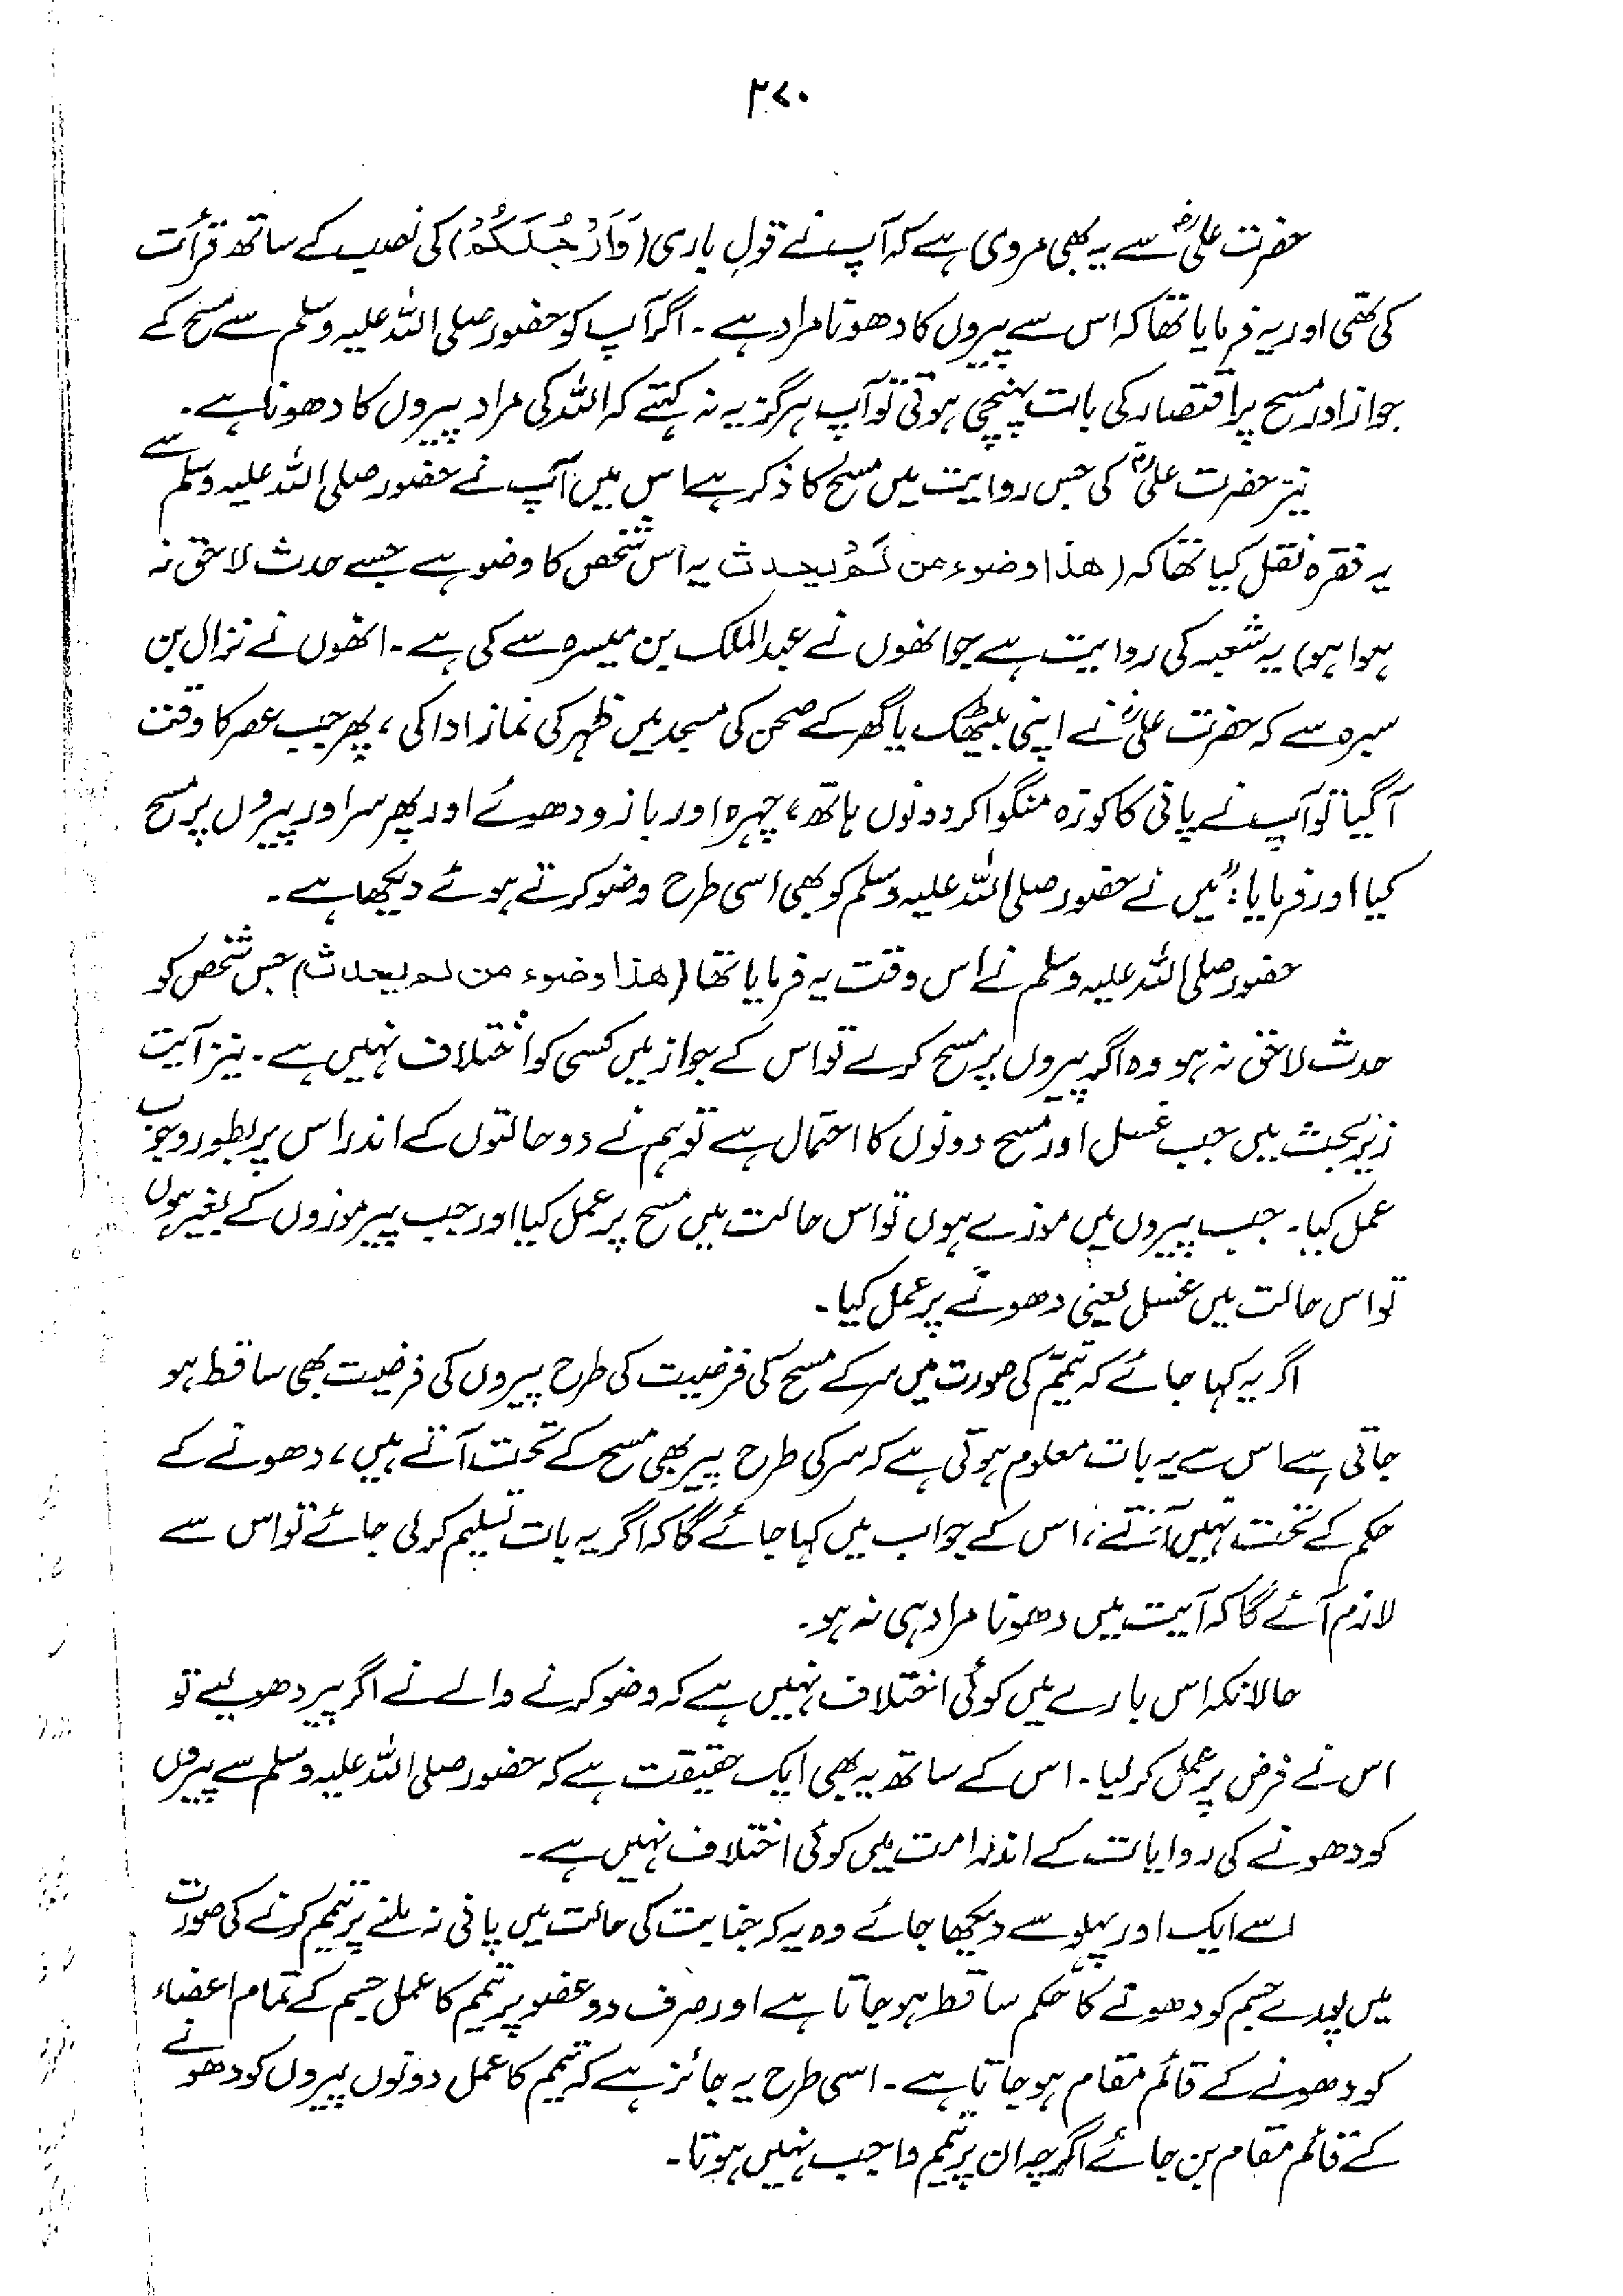 ۳۷۰
حضرت علیؓ سے یہ بھی مروی ہے کہ آپ نے قولِ باری (وَاَرْجُلَكُمْ) کی نصب کے ساتھ قرأت
کی تھی اور یہ فرمایا تھا کہ اس سے پیروں کا دھونا مراد ہے ۔ اگر آپ کو حضور صلی اللہ علیہ وسلم سے مسح کے
جواز اور مسح پر اقتصار کی بات پہنچی ہوتی تو آپ ہرگز یہ نہ کہتے کہ اللہ کی مراد پیروں کا دھونا ہے ۔
نیز حضرت علیؓ کی جس روایت میں مسح کا ذکر ہے اس میں آپ نے حضور صلی اللہ علیہ وسلم سے
یہ فقرہ نقل کیا تھا کہ (هذا وضوء من لم يحدث یہ اس شخص کا وضو ہے جسے حدث لاحق نہ
ہوا ہو) یہ شعبہ کی روایت ہے جو انھوں نے عبدالملک بن میسرہ سے کی ہے ۔ انھوں نے نزال بن
سبرہ سے کہ حضرت علیؓ نے اپنی بیٹھک یا گھر کے صحن کی مسجد میں ظہر کی نماز ادا کی ، پھر جب عصر کا وقت
آگیا تو آپ نے پانی کا کوزہ منگوا کر دونوں ہاتھ ، چہرہ اور بازو دھوئے اور پھر سر اور پیروں پر مسح
کیا اور فرمایا : "میں نے حضور صلی اللہ علیہ وسلم کو بھی اسی طرح وضو کرتے ہوئے دیکھا ہے ۔
حضور صلی اللہ علیہ وسلم نے اس وقت یہ فرمایا تھا (هذا وضوء من لم يحدث) جس شخص کو
حدث لاحق نہ ہو وہ اگر پیروں پر مسح کرے تو اس کے جواز میں کسی کو اختلاف نہیں ہے ۔ نیز آیت
زیر بحث میں جب غسل اور مسح دونوں کا احتمال ہے تو ہم نے دو حالتوں کے اندر اس پر بطور وجوب
عمل کیا ۔ جب پیروں میں موزے ہوں تو اس حالت میں مسح پر عمل کیا اور جب پیر موزوں کے بغیر ہوں
تو اس حالت میں غسل یعنی دھونے پر عمل کیا ۔
اگر یہ کہا جائے کہ تیمّم کی صورت میں سر کے مسح کی فرضیت کی طرح پیروں کی فرضیت بھی ساقط ہو
جاتی ہے اس سے یہ بات معلوم ہوتی ہے کہ سر کی طرح پیر بھی مسح کے تحت آتے ہیں ، دھونے کے
حکم کے تحت نہیں آتے ، اس کے جواب میں کہا جائے گا کہ اگر یہ بات تسلیم کر لی جائے تو اس سے
لازم آئے گا کہ آیت میں دھونا مراد ہی نہ ہو ۔
حالانکہ اس بارے میں کوئی اختلاف نہیں ہے کہ وضو کرنے والے نے اگر پیر دھو لیے تو
اس نے فرض پر عمل کر لیا ۔ اس کے ساتھ یہ بھی ایک حقیقت ہے کہ حضور صلی اللہ علیہ وسلم سے پیروں
کو دھونے کی روایات کے اندر امت میں کوئی اختلاف نہیں ہے ۔
اسے ایک اور پہلو سے دیکھا جائے وہ یہ کہ جنابت کی حالت میں پانی نہ ملنے پر تیمم کرنے کی صورت
میں پورے جسم کو دھونے کا حکم ساقط ہو جاتا ہے اور صرف دو عضو پر تیمم کا عمل جسم کے تمام اعضاء
کو دھونے کے قائم مقام ہو جاتا ہے ۔ اسی طرح یہ جائز ہے کہ تیمم کا عمل دونوں پیروں کو دھونے
کے قائم مقام بن جائے اگرچہ ان پر تیمم واجب نہیں ہوتا ۔